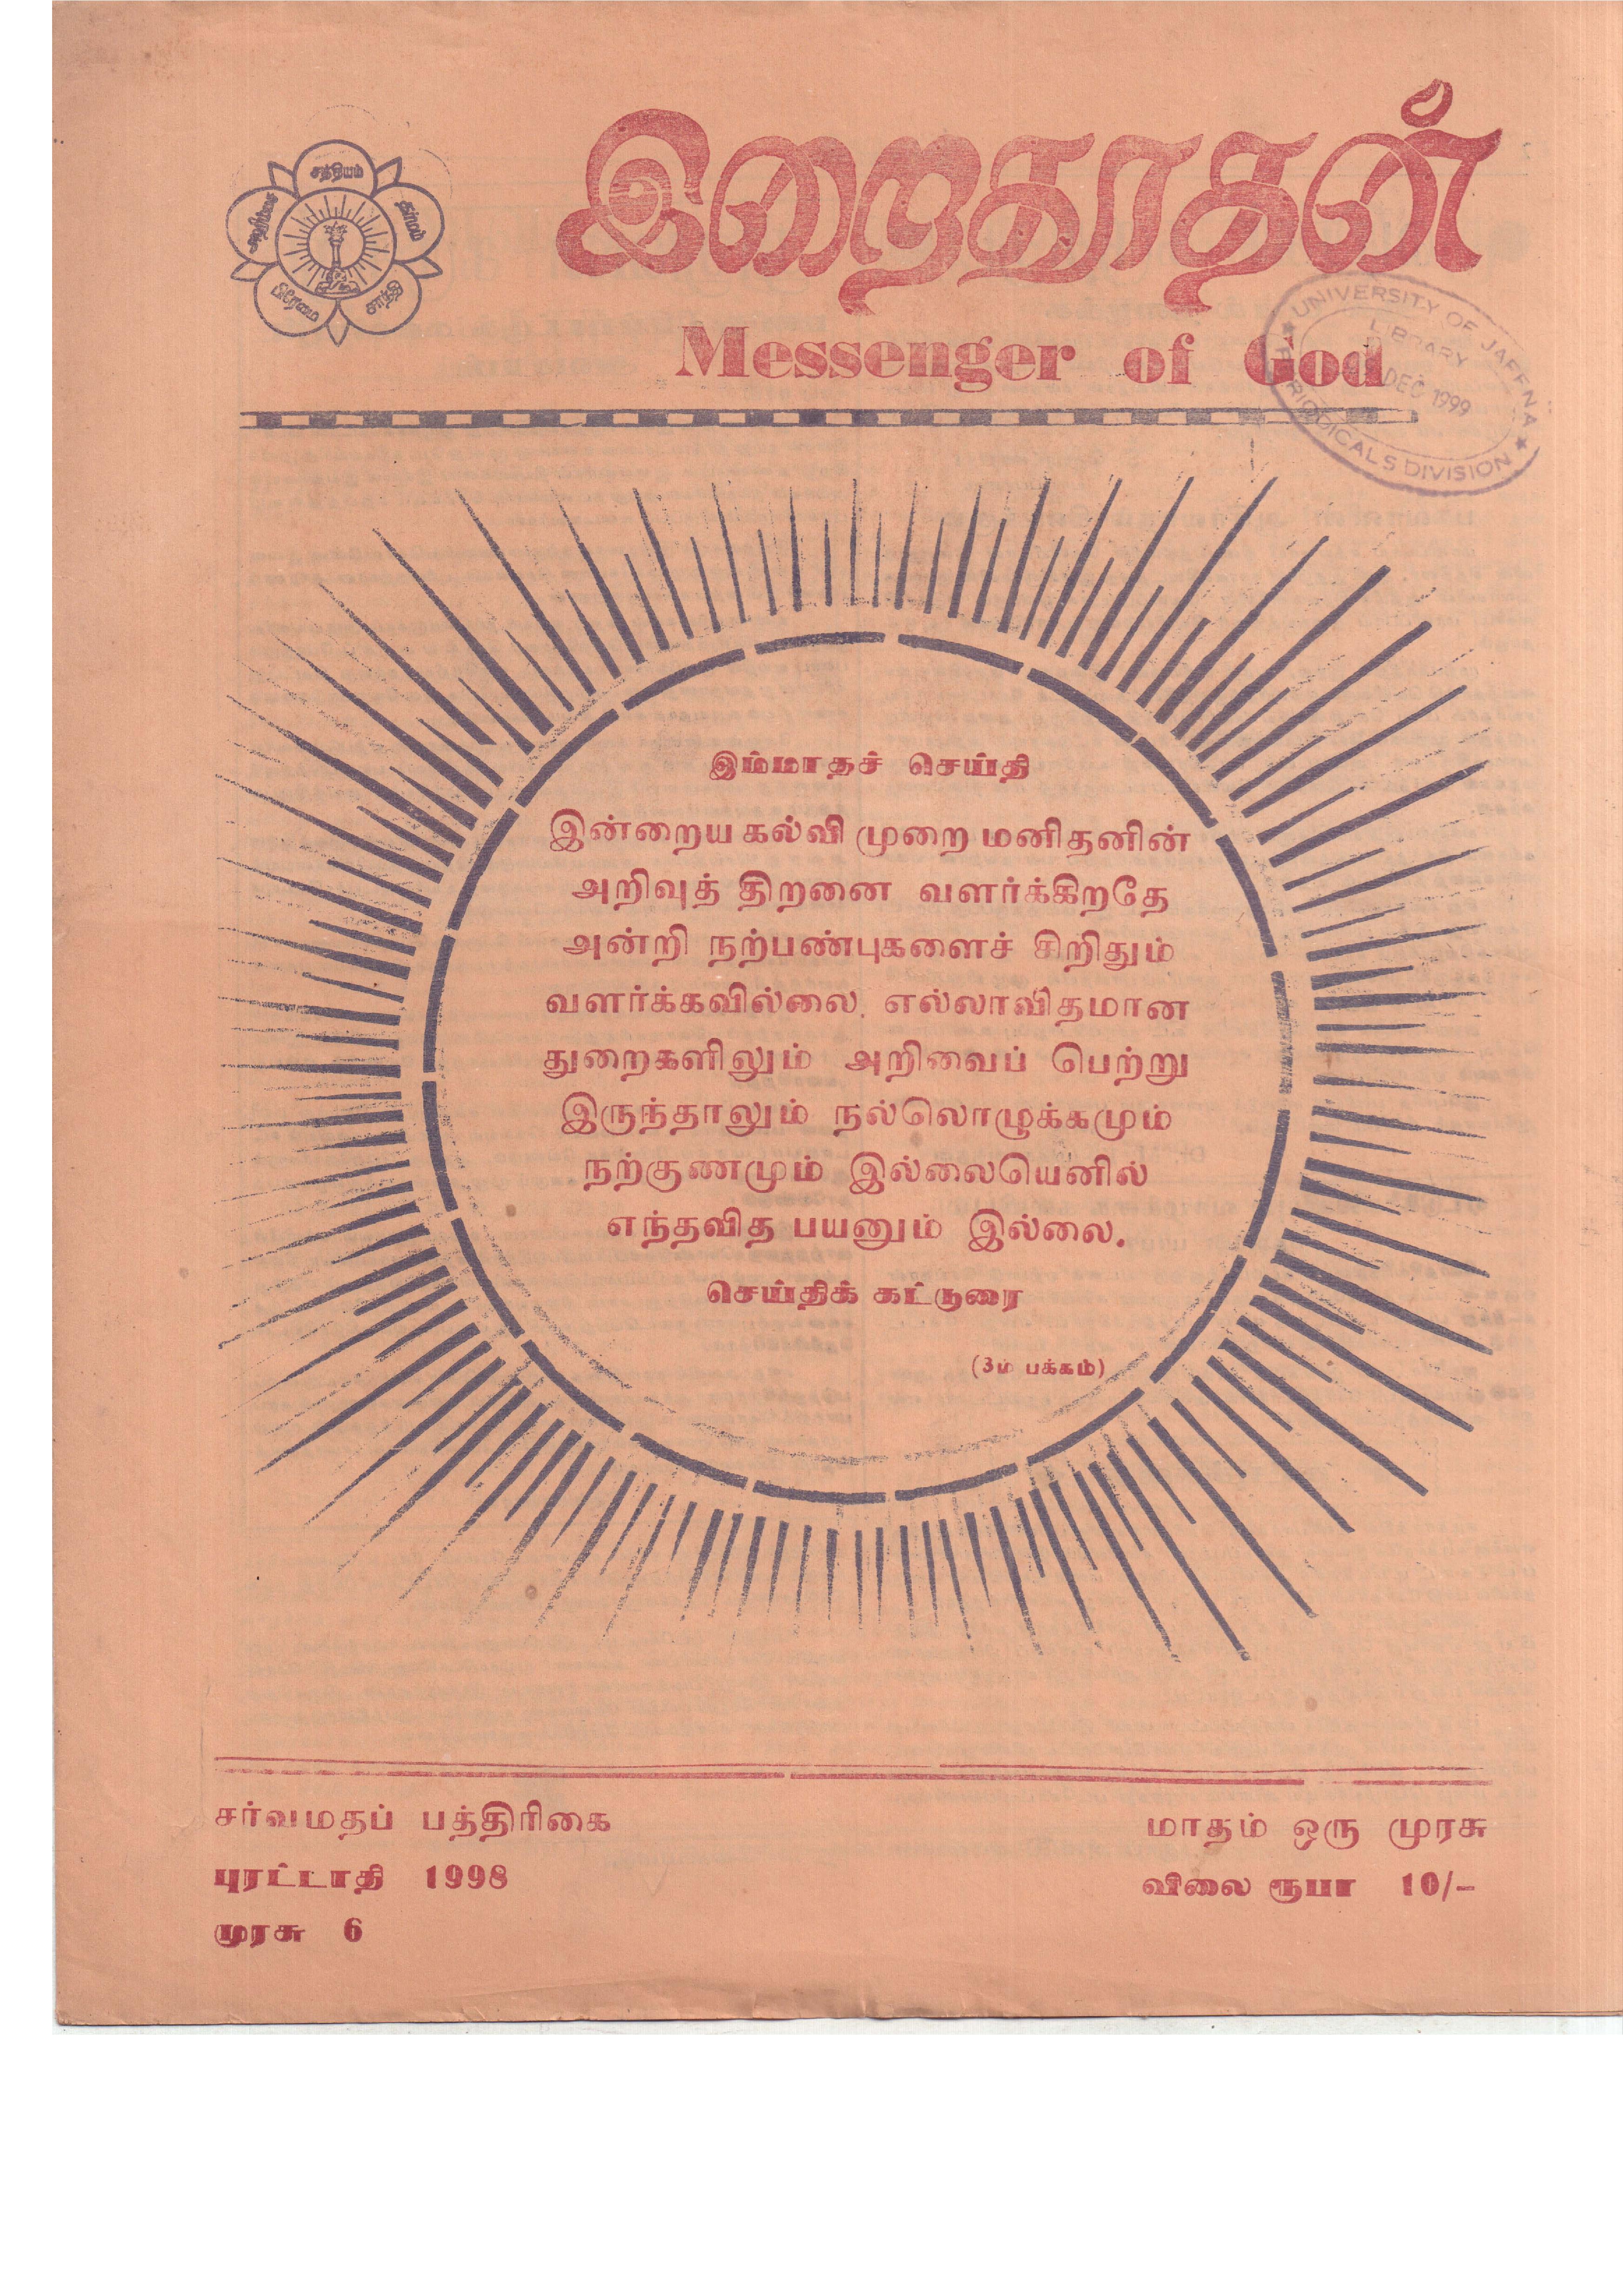 சத்தியம்
தர்மம்
சாந்தி
பிரேமை
அஹிம்சை
இறைதூதன்
Messenger of God
UNIVERSITY OF JAFFNA
LIBRARY
DEC 1999
PERIODICALS DIVISION
இம்மாதச் செய்தி
இன்றைய கல்வி முறை மனிதனின்
அறிவுத் திறனை வளர்க்கிறதே
அன்றி நற்பண்புகளைச் சிறிதும்
வளர்க்கவில்லை. எல்லாவிதமான
துறைகளிலும் அறிவைப் பெற்று
இருந்தாலும் நல்லொழுக்கமும்
நற்குணமும் இல்லையெனில்
எந்தவித பயனும் இல்லை.
செய்திக் கட்டுரை
(3ம் பக்கம்)
சர்வமதப் பத்திரிகை
புரட்டாதி 1998
முரசு 6
மாதம் ஒரு முரசு
விலை ரூபா 10/-